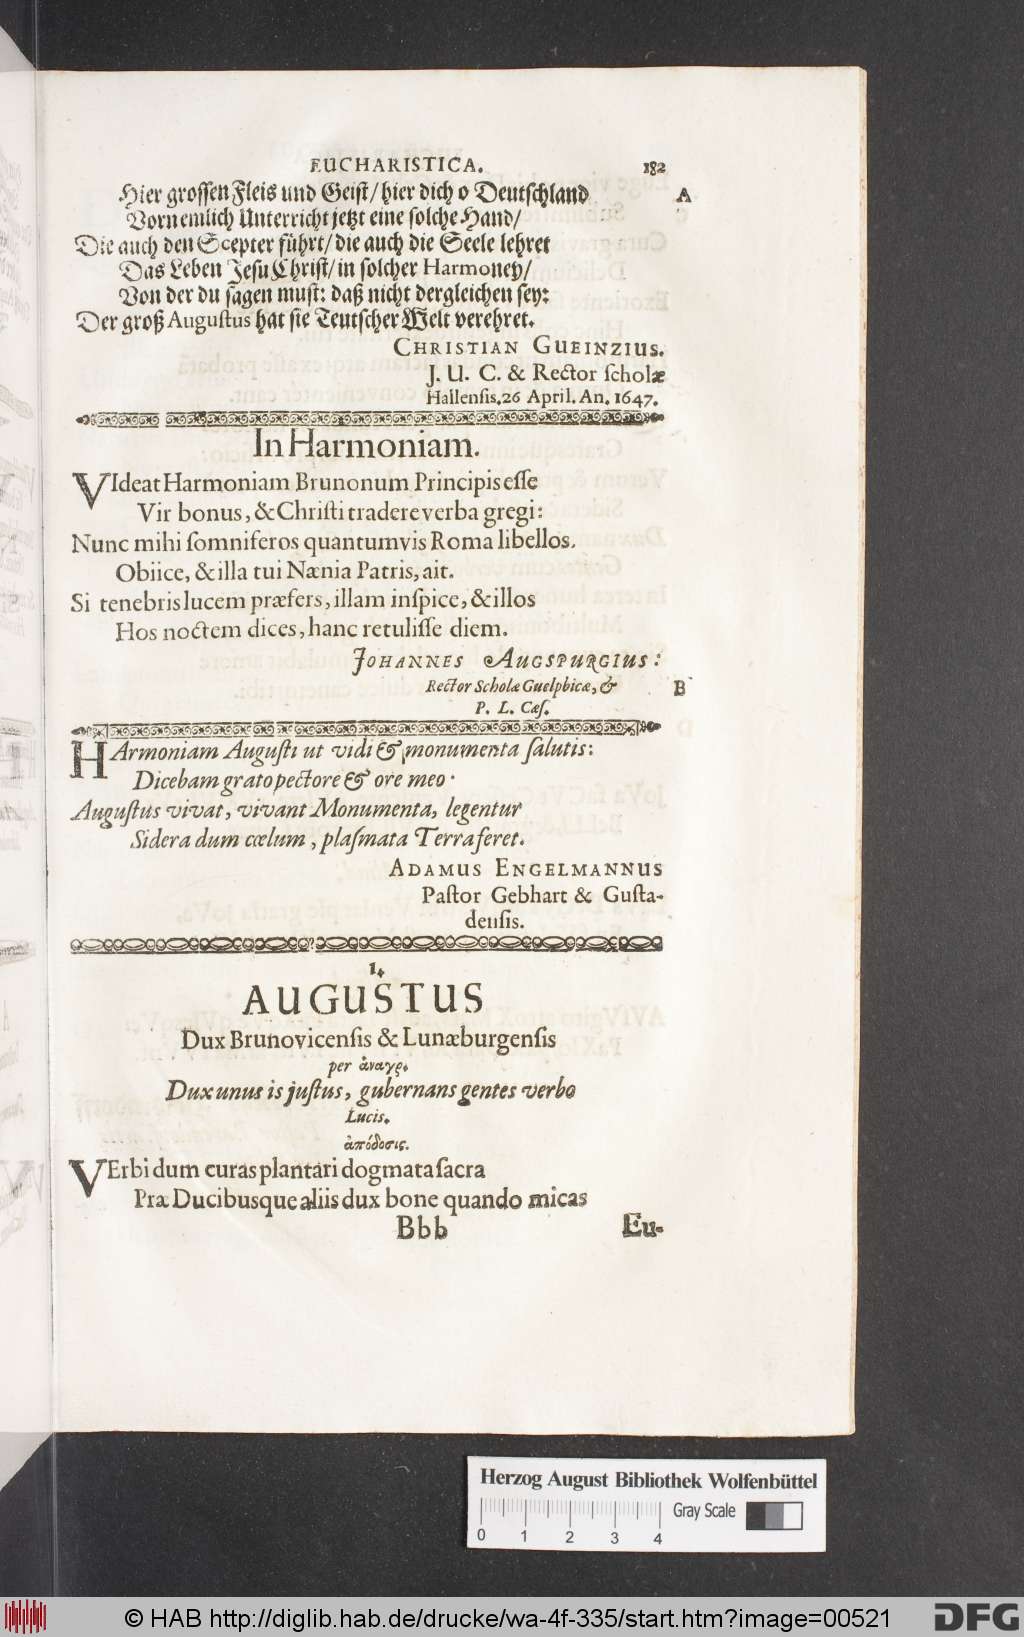 EUCHARISTICA. 182
Hier grossen Fleis und Geist/ hier dich o Deutschland A
Vornemlich Unterricht jetzt eine solche Hand/
Die auch den Scepter führt/ die auch die Seele lehret
Das Leben Jesu Christ/ in solcher Harmoney/
Von der du sagen must: daß nicht dergleichen sey:
Der groß Augustus hat sie Teutscher Welt verehret.
CHRISTIAN GUEINZIUS.
J. U. C. & Rector scholæ
Hallensis. 26 April. An. 1647.
In Harmoniam.
VIdeat Harmoniam Brunonum Principis esse
Vir bonus, & Christi tradere verba gregi:
Nunc mihi somniferos quantumvis Roma libellos.
Obiice, & illa tui Nænia Patris, ait.
Si tenebris lucem præfers, illam inspice, & illos
Hos noctem dices, hanc retulisse diem.
JOHANNES AUGSPURGIUS:
Rector Scholæ Guelphicæ, & B
P. L. Cæs.
HArmoniam Augusti ut vidi & monumenta salutis:
Dicebam grato pectore & ore meo.
Augustus vivat, vivant Monumenta, legentur
Sidera dum cœlum, plasmata Terra feret.
ADAMUS ENGELMANNUS
Pastor Gebhart & Gusta-
densis.
14
AUGUSTUS
Dux Brunovicensis & Lunæburgensis
per ἀναγρ.
Dux unus is justus, gubernans gentes verbo
Lucis.
ἀπόδοσις.
VErbi dum curas plantari dogmata sacra
Præ Ducibusque aliis dux bone quando micas
Bbb Eu-
Herzog August Bibliothek Wolfenbüttel
Gray Scale
0 1 2 3 4
© HAB http://diglib.hab.de/drucke/wa-4f-335/start.htm?image=00521 DFG